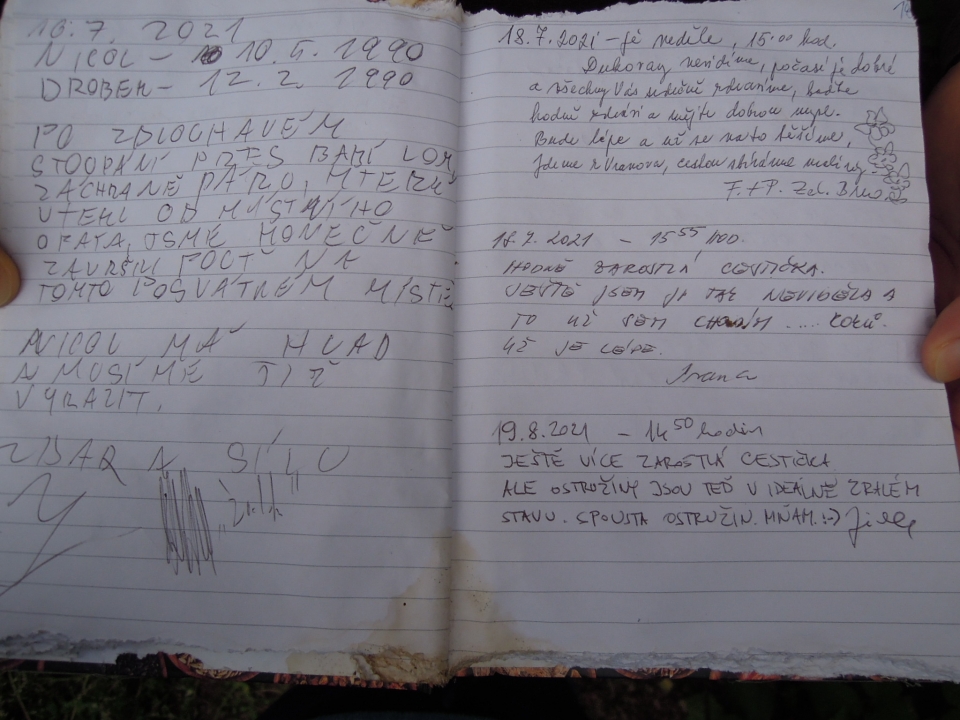 16.7. 2021
NICOL - 10.5. 1990
DROBEK - 12.2. 1990
PO ZDLOUHAVÉM
STOUPÁNÍ PŘES BABÍ LOM,
ZÁCHRANĚ PÁRU,
UTEKL OD MÍSTNÍHO
JSME KONEČNĚ
POCTĚ NA
TOMTO POSVÁTNÉM MÍSTĚ.
NICOL MÁ HLAD
A MUSÍME JÍŽ
VYRAZIT.
ZDAR A SÍLU
18.7.2021 - je neděle, 15.00 hod.
Dukovany nevidíme, počasí je dobré
a všechny Vás srdečně zdravíme, buďte
hodně zdrávi a mějte dobrou mysl.
Bude lépe a už se na to těšíme,
Jdeme z Vranova, cestou sbíráme maliny.
F.+P. Zd. Brno
18.7.2021 - 15 55 HOD.
HODNĚ ZAROSTLÁ CESTIČKA.
JEŠTĚ JSEM JI TAK NEVIDĚLA A
TO UŽ SEM CHODÍM .... ROKŮ.
UŽ JE LÉPE.
Ivana
19.8.2021 - 14 50 hodin
JEŠTĚ VÍCE ZAROSTLÁ CESTIČKA
ALE OSTRUŽINY JSOU TEĎ V IDEÁLNĚ ZRALÉM
STAVU. SPOUSTA OSTRUŽIN. MŇAM. :-)